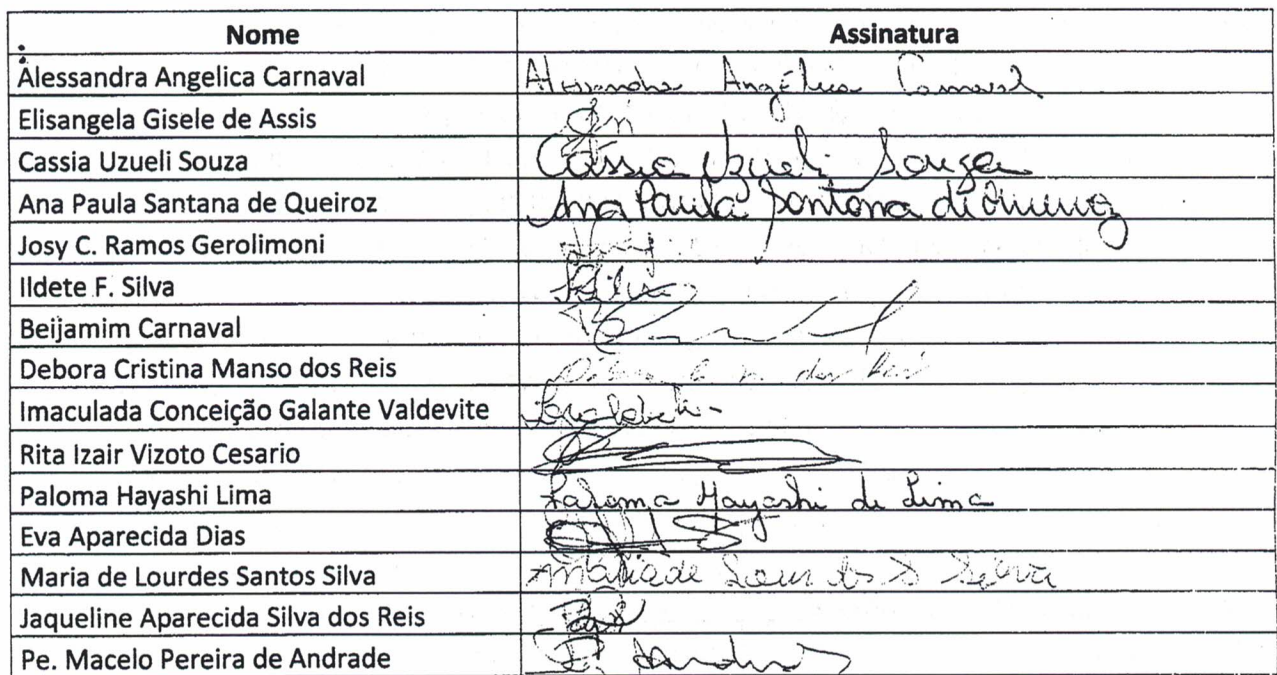 Nome Assinatura
Alessandra Angelica Carnaval Alessandra Angélica Carnaval
Elisangela Gisele de Assis
Cassia Uzueli Souza Cássia Uzueli Souza
Ana Paula Santana de Queiroz Ana Paula Santana de Queiroz
Josy C. Ramos Gerolimoni
Ildete F. Silva Silva
Beijamim Carnaval
Debora Cristina Manso dos Reis
Imaculada Conceição Galante Valdevite
Rita Izair Vizoto Cesario
Paloma Hayashi Lima Paloma Hayashi de Lima
Eva Aparecida Dias
Maria de Lourdes Santos Silva
Jaqueline Aparecida Silva dos Reis
Pe. Macelo Pereira de Andrade